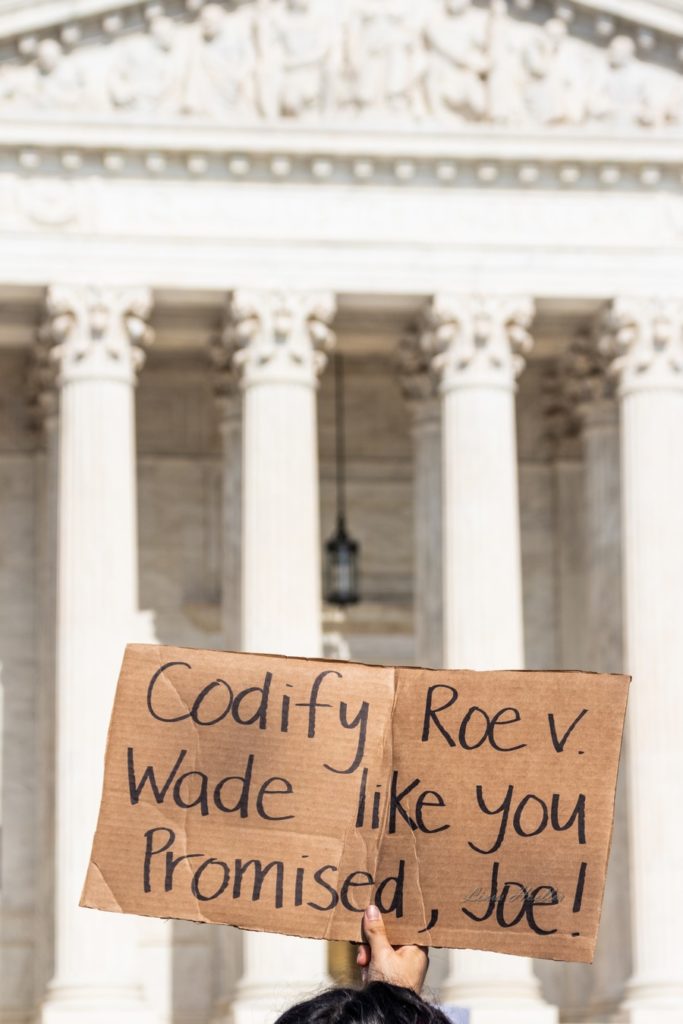 Codify Roe v.
Wade like you
Promised, Joe!